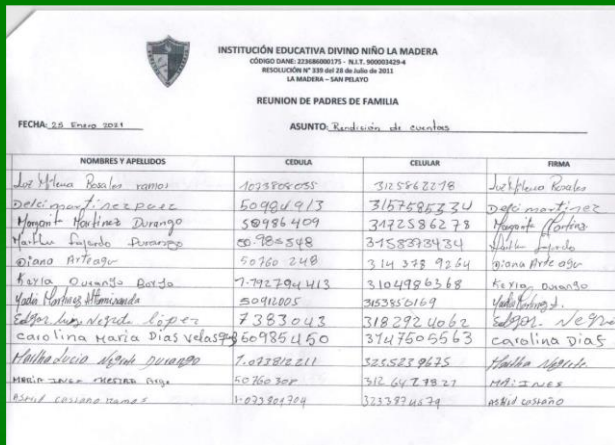 INSTITUCIÓN EDUCATIVA DIVINO NIÑO LA MADERA
CÓDIGO DANE: 223686000175 - N.I.T. 900003429-4
RESOLUCIÓN N° 339 del 28 de Julio de 2011
LA MADERA – SAN PELAYO
REUNION DE PADRES DE FAMILIA
FECHA: 25 Enero 2021 ASUNTO: Rendición de cuentas
NOMBRES Y APELLIDOS CEDULA CELULAR FIRMA
Luz Milena Rosales ramos 1073808055 3125862278 Luz Milena Rosales
Delci martinez paez 50984913 3157585334 Delci martinez
Margarita Martinez Durango 50986409 3172586278 Margarita Martinez
Fajardo Durango 50.985548 3158373434 Fajardo
Diana Arteaga 50760248 314 378 9264 Diana Arteaga
Keyla Durango 3104986368 Keyla Durango
Yadis Martinez 50912005 3153850169 Yadis Martinez
Edgar Negrete lópez 7383043 3182924062 Edgar Negre
carolina Maria Dias velasq 50985450 3147505563 carolina Dias
Martha Lucia Negrete Durango 1.073812211 3235239675 Martha Negrete
MARIA 50760308 MA: INES
Astrid castaño Ramos 1-073809709 3233874579 Astrid castaño